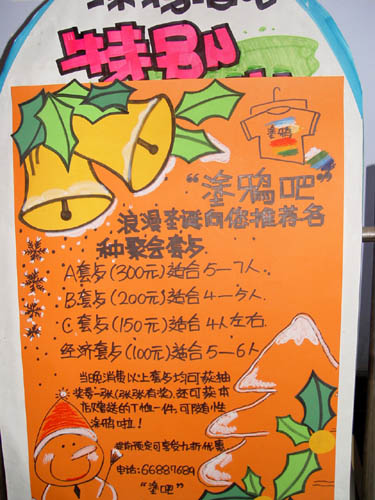 特别
塗鸦
“塗鸦吧”
浪漫圣诞向您推荐各
种聚会套占
A套占(300元)适合5—7人.
B套占(200元)适合4—5人.
C套占(150元)适合4人左右.
经济套占(100元)适合5—6人
当晚消费以上套占均可获抽
奖券一张(张张有奖).还可获本
店赠送的T恤一件,可随性
涂鸦啦!
提前预定可享受九折优惠
电话:66887689
“塗吧”